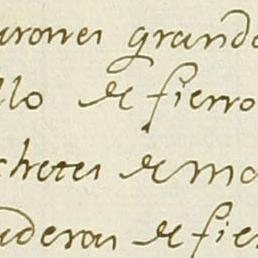 arones grande
llo de fierro
chetes de ma
aderas de fie